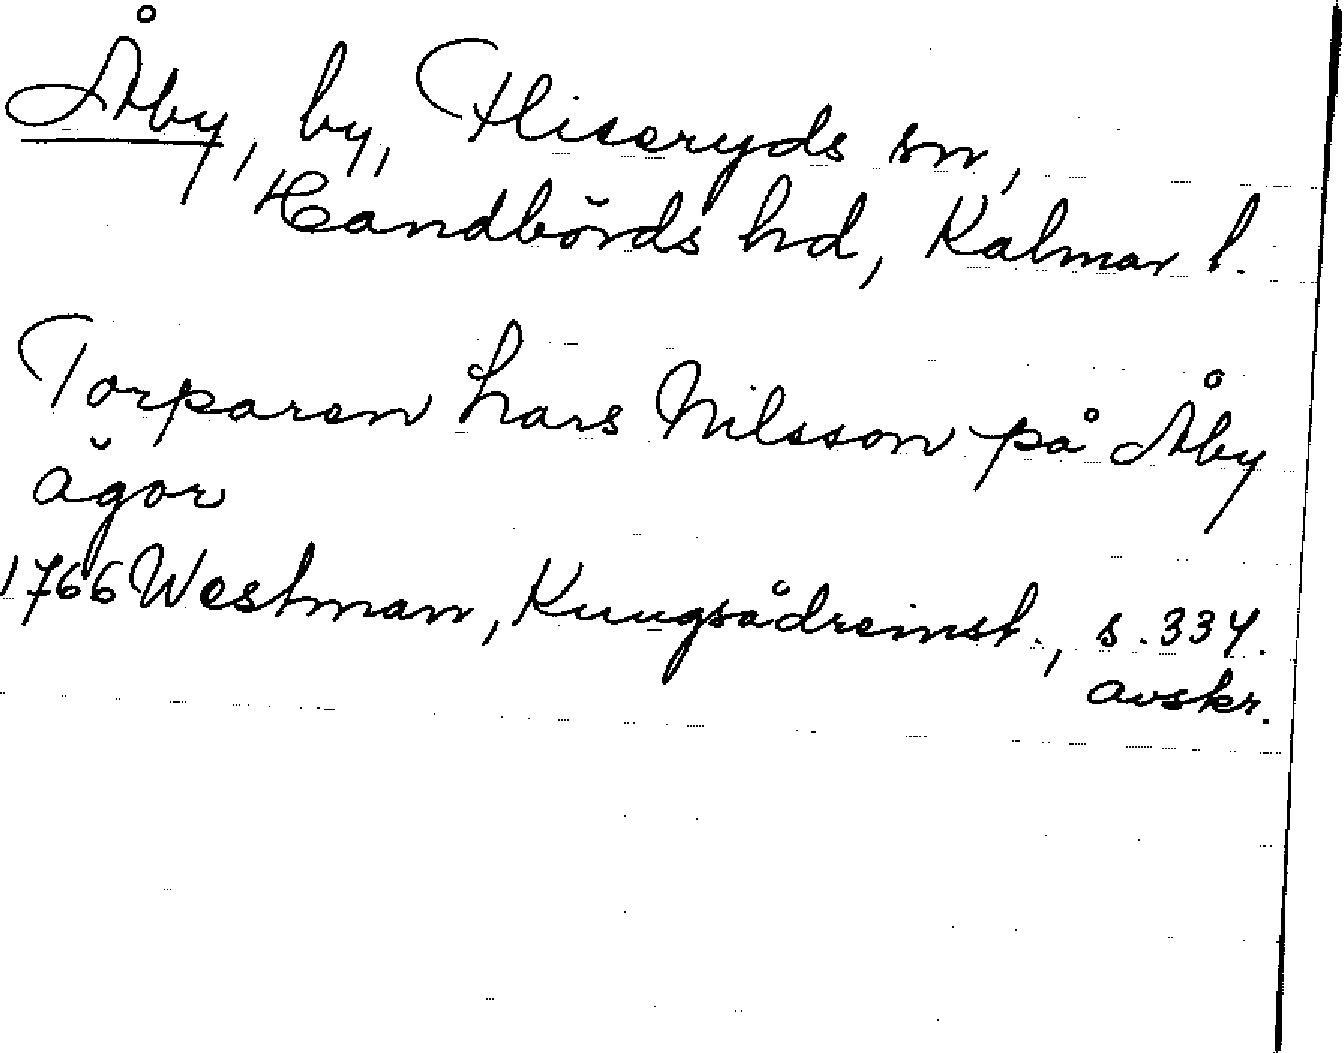 Åby, by, Fliseryds sn,
Handbörds hd, Kalmar l.
Torparen Lars Nilsson på Åby
ägor
1766 Westman, Kungsådreinst., s. 334.
avskr.